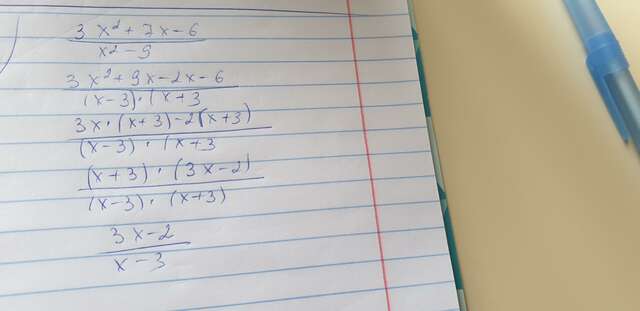 3x²+7x-6
x²-9
3x²+9x-2x-6
(x-3)·(x+3
3x·(x+3)-2(x+3)
(x-3)·(x+3
(x+3)·(3x-2)
(x-3)·(x+3)
3x-2
x-3